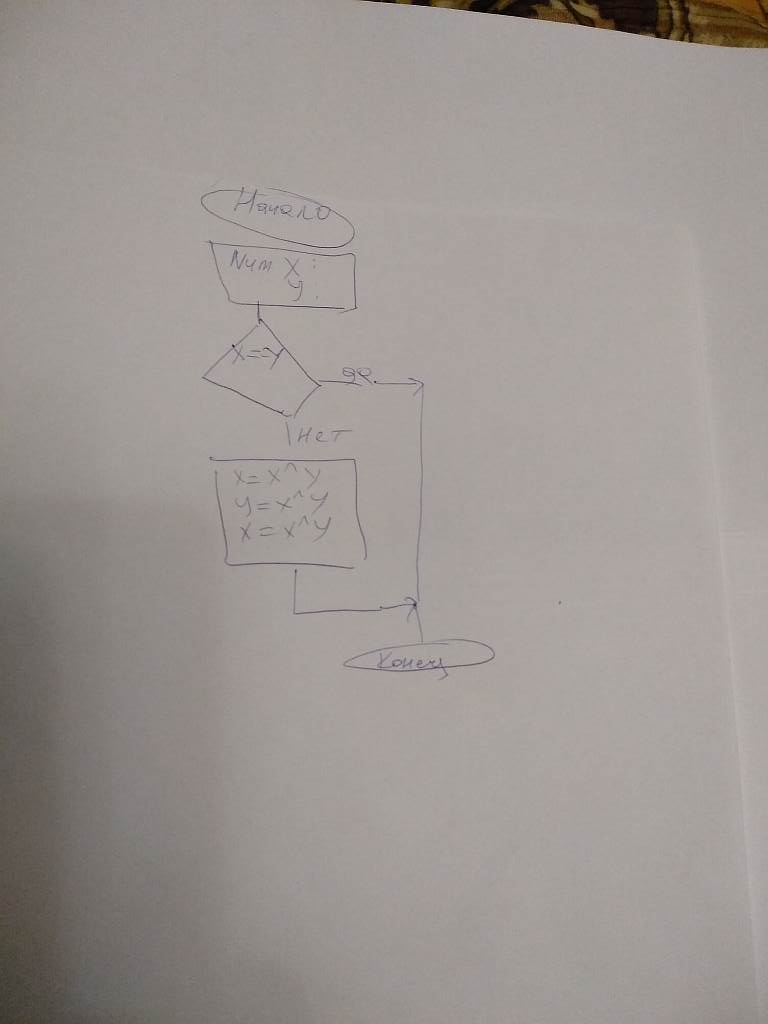 Начало
Num X;
y;
X==Y
да
нет
X=X^Y
Y=X^Y
X=X^Y
Конец